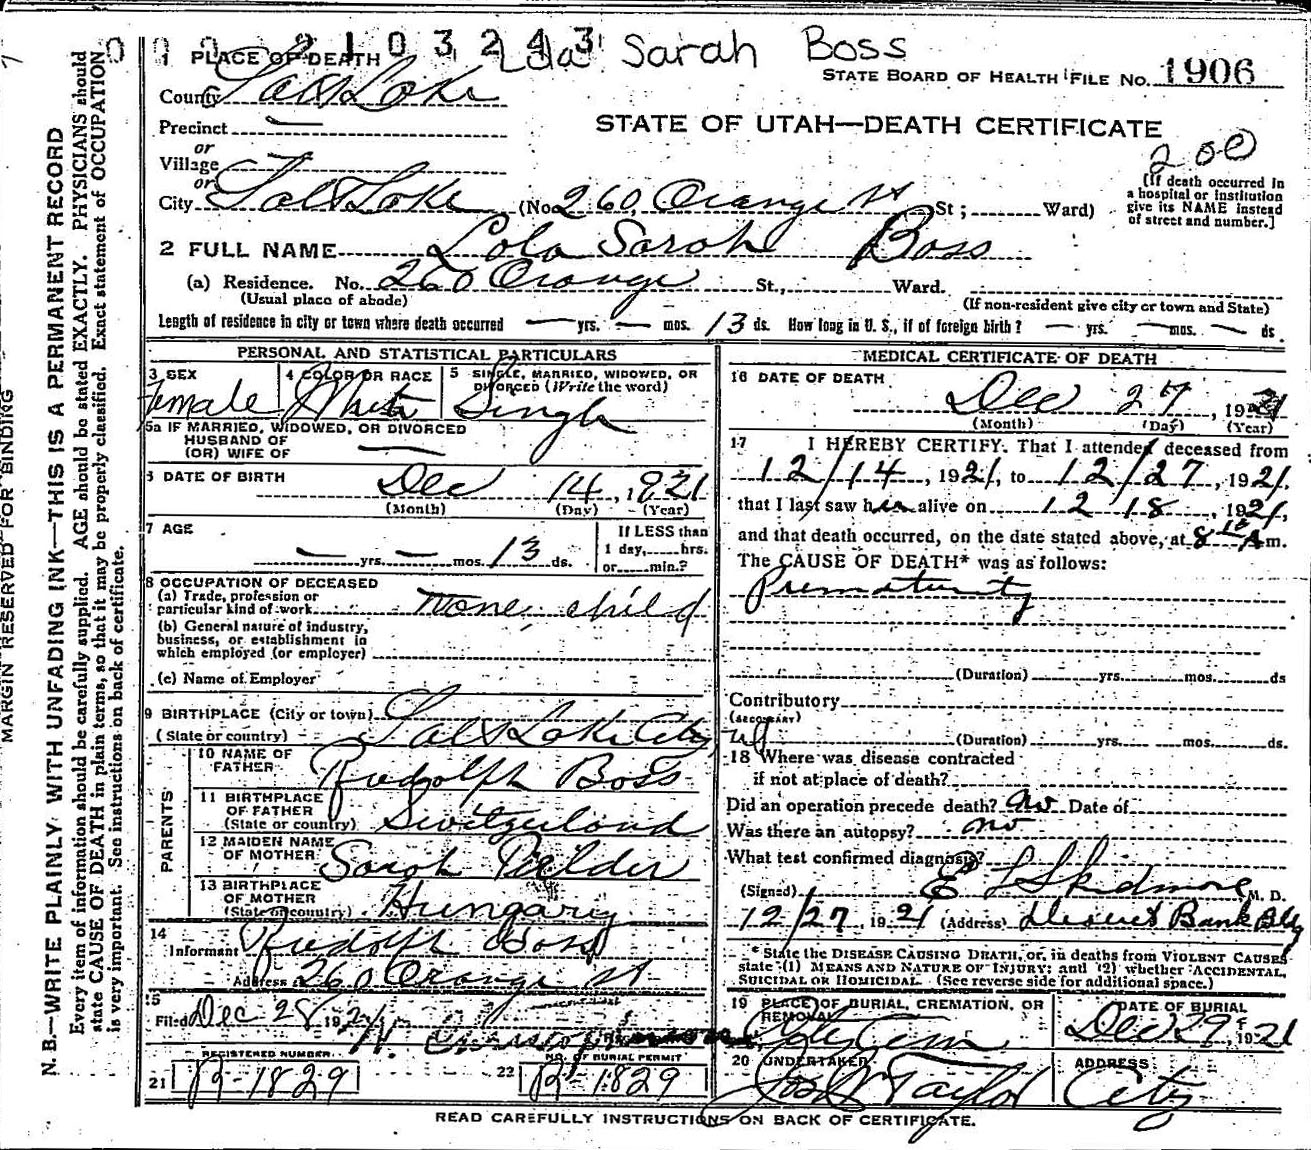 0 0 0 2 1 0 3 2 4 3
Lola Sarah Boss
1 PLACE OF DEATH
STATE BOARD OF HEALTH FILE NO. 1906
County Salt Lake
STATE OF UTAH—DEATH CERTIFICATE
Precinct —
or
Village —
or
City Salt Lake (No. 260, Orange St St; Ward)
200
(If death occurred in a hospital or institution give its NAME instead of street and number.]
2 FULL NAME Lola Sarah Boss
(a) Residence. No. 260 Orange St., Ward.
(Usual place of abode) (If non-resident give city or town and State)
Length of residence in city or town where death occurred — yrs. — mos. 13 ds. How long in U. S., if of foreign birth? — yrs. — mos. — ds.
PERSONAL AND STATISTICAL PARTICULARS
3 SEX Female
4 COLOR OR RACE White
5 SINGLE, MARRIED, WIDOWED, OR DIVORCED (Write the word) Single
5a IF MARRIED, WIDOWED, OR DIVORCED
HUSBAND OF
(OR) WIFE OF —
6 DATE OF BIRTH Dec 14, 1921
(Month) (Day) (Year)
7 AGE — yrs. — mos. 13 ds.
If LESS than 1 day, hrs. or min.?
8 OCCUPATION OF DECEASED
(a) Trade, profession or particular kind of work None, child
(b) General nature of industry, business, or establishment in which employed (or employer)
(c) Name of Employer
9 BIRTHPLACE (City or town) Salt Lake City
(State or country)
PARENTS
10 NAME OF FATHER Rudolph Boss
11 BIRTHPLACE OF FATHER (State or country) Switzerland
12 MAIDEN NAME OF MOTHER Sarah
13 BIRTHPLACE OF MOTHER (State or country) Hungary
14 Informant Rudolph Boss
Address 260 Orange St
15 Filed Dec 28 1921
REGISTERED NUMBER
21 B-1829
NO. OF BURIAL PERMIT
22 B-1829
MEDICAL CERTIFICATE OF DEATH
16 DATE OF DEATH
Dec 27, 1921
(Month) (Day) (Year)
17 I HEREBY CERTIFY. That I attended deceased from
12/14, 1921, to 12/27, 1921.
that I last saw her alive on 12 18, 1921,
and that death occurred, on the date stated above, at 8 10 A m.
The CAUSE OF DEATH* was as follows:
Prematurity
(Duration) yrs. mos. ds
Contributory
(SECONDARY)
(Duration) yrs. mos. ds.
18 Where was disease contracted
if not at place of death?
Did an operation precede death? no Date of
Was there an autopsy? no
What test confirmed diagnosis?
(Signed) E L Skidmore M. D.
12/27 1921 (Address) Deseret Bank Bldg
* State the DISEASE CAUSING DEATH, or, in deaths from VIOLENT CAUSES state (1) MEANS AND NATURE OF INJURY; and (2) whether ACCIDENTAL, SUICIDAL OR HOMICIDAL. (See reverse side for additional space.)
19 PLACE OF BURIAL, CREMATION, OR REMOVAL City Cem
DATE OF BURIAL Dec 29, 1921
20 UNDERTAKER Jos Wm Taylor
ADDRESS City
READ CAREFULLY INSTRUCTIONS ON BACK OF CERTIFICATE.
MARGIN RESERVED FOR BINDING
N. B.—WRITE PLAINLY WITH UNFADING INK—THIS IS A PERMANENT RECORD
Every item of information should be carefully supplied. AGE should be stated EXACTLY. PHYSICIANS should
state CAUSE OF DEATH in plain terms, so that it may be properly classified. Exact statement of OCCUPATION
is very important. See instructions on back of certificate.